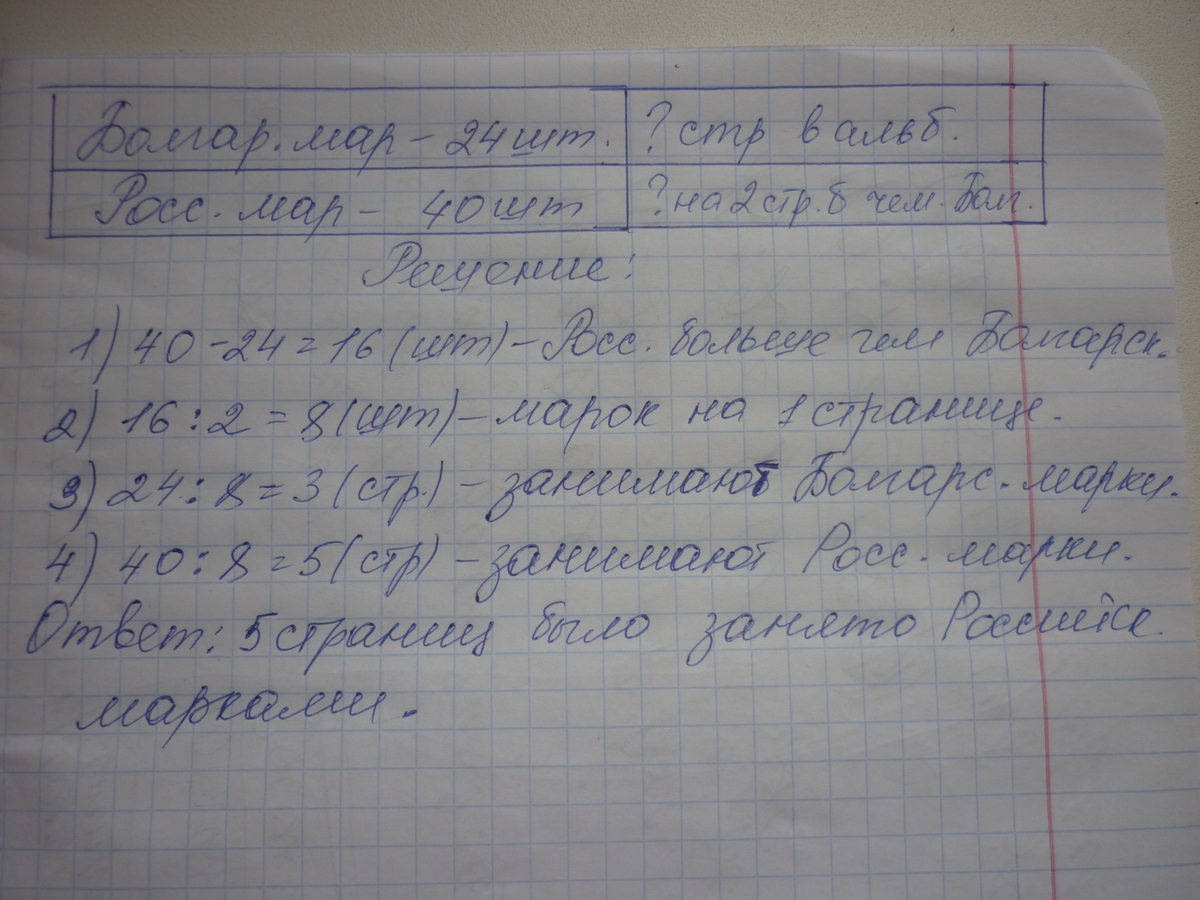 Болгар. мар – 24 шт. ? стр в альб.
Росс. мар – 40 шт ? на 2 стр. б чем. Болг.
Решение:
1) 40 - 24 = 16 (шт) – Росс. больше чем Болгарск.
2) 16 : 2 = 8 (шт) – марок на 1 странице.
3) 24 : 8 = 3 (стр.) – занимают Болгарс. марки.
4) 40 : 8 = 5 (стр) – занимают Росс. марки.
Ответ: 5 страниц было занято Российск.
марками.